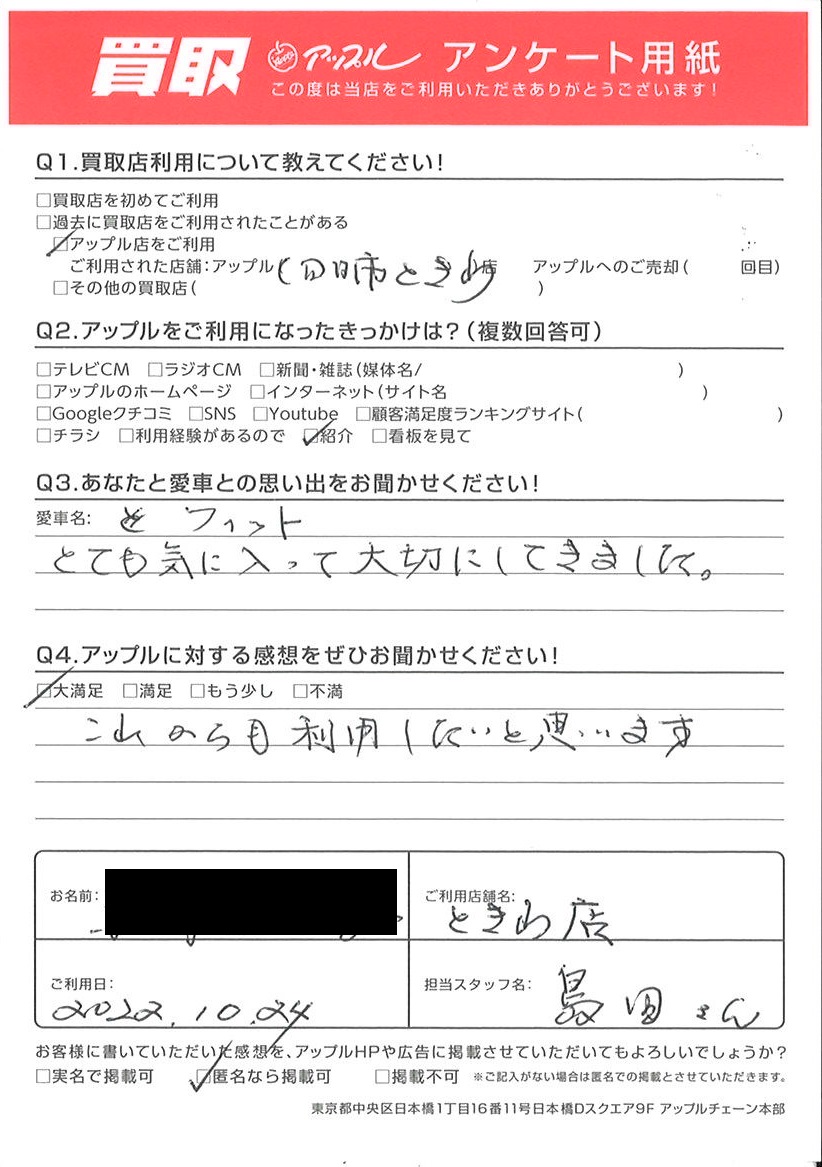 買取 アップル アンケート用紙
この度は当店をご利用いただきありがとうございます!
Q1.買取店利用について教えてください!
□買取店を初めてご利用
□過去に買取店をご利用されたことがある
☑アップル店をご利用
ご利用された店舗:アップル(四日市ときわ)店 アップルへのご売却( 回目)
□その他の買取店( )
Q2.アップルをご利用になったきっかけは?(複数回答可)
□テレビCM □ラジオCM □新聞・雑誌(媒体名/ )
□アップルのホームページ □インターネット(サイト名 )
□Googleクチコミ □SNS □Youtube □顧客満足度ランキングサイト( )
□チラシ □利用経験があるので ☑紹介 □看板を見て
Q3.あなたと愛車との思い出をお聞かせください!
愛車名: フィット
とても気に入って大切にしてきました。
Q4.アップルに対する感想をぜひお聞かせください!
☑大満足 □満足 □もう少し □不満
これからも利用したいと思います
お名前:
ご利用店舗名:
ときわ店
ご利用日:
2022.10.24
担当スタッフ名:
島田さん
お客様に書いていただいた感想を、アップルHPや広告に掲載させていただいてもよろしいでしょうか?
□実名で掲載可 ☑匿名なら掲載可 □掲載不可 ※ご記入がない場合は匿名での掲載とさせていただきます。
東京都中央区日本橋1丁目16番11号日本橋Dスクエア9F アップルチェーン本部